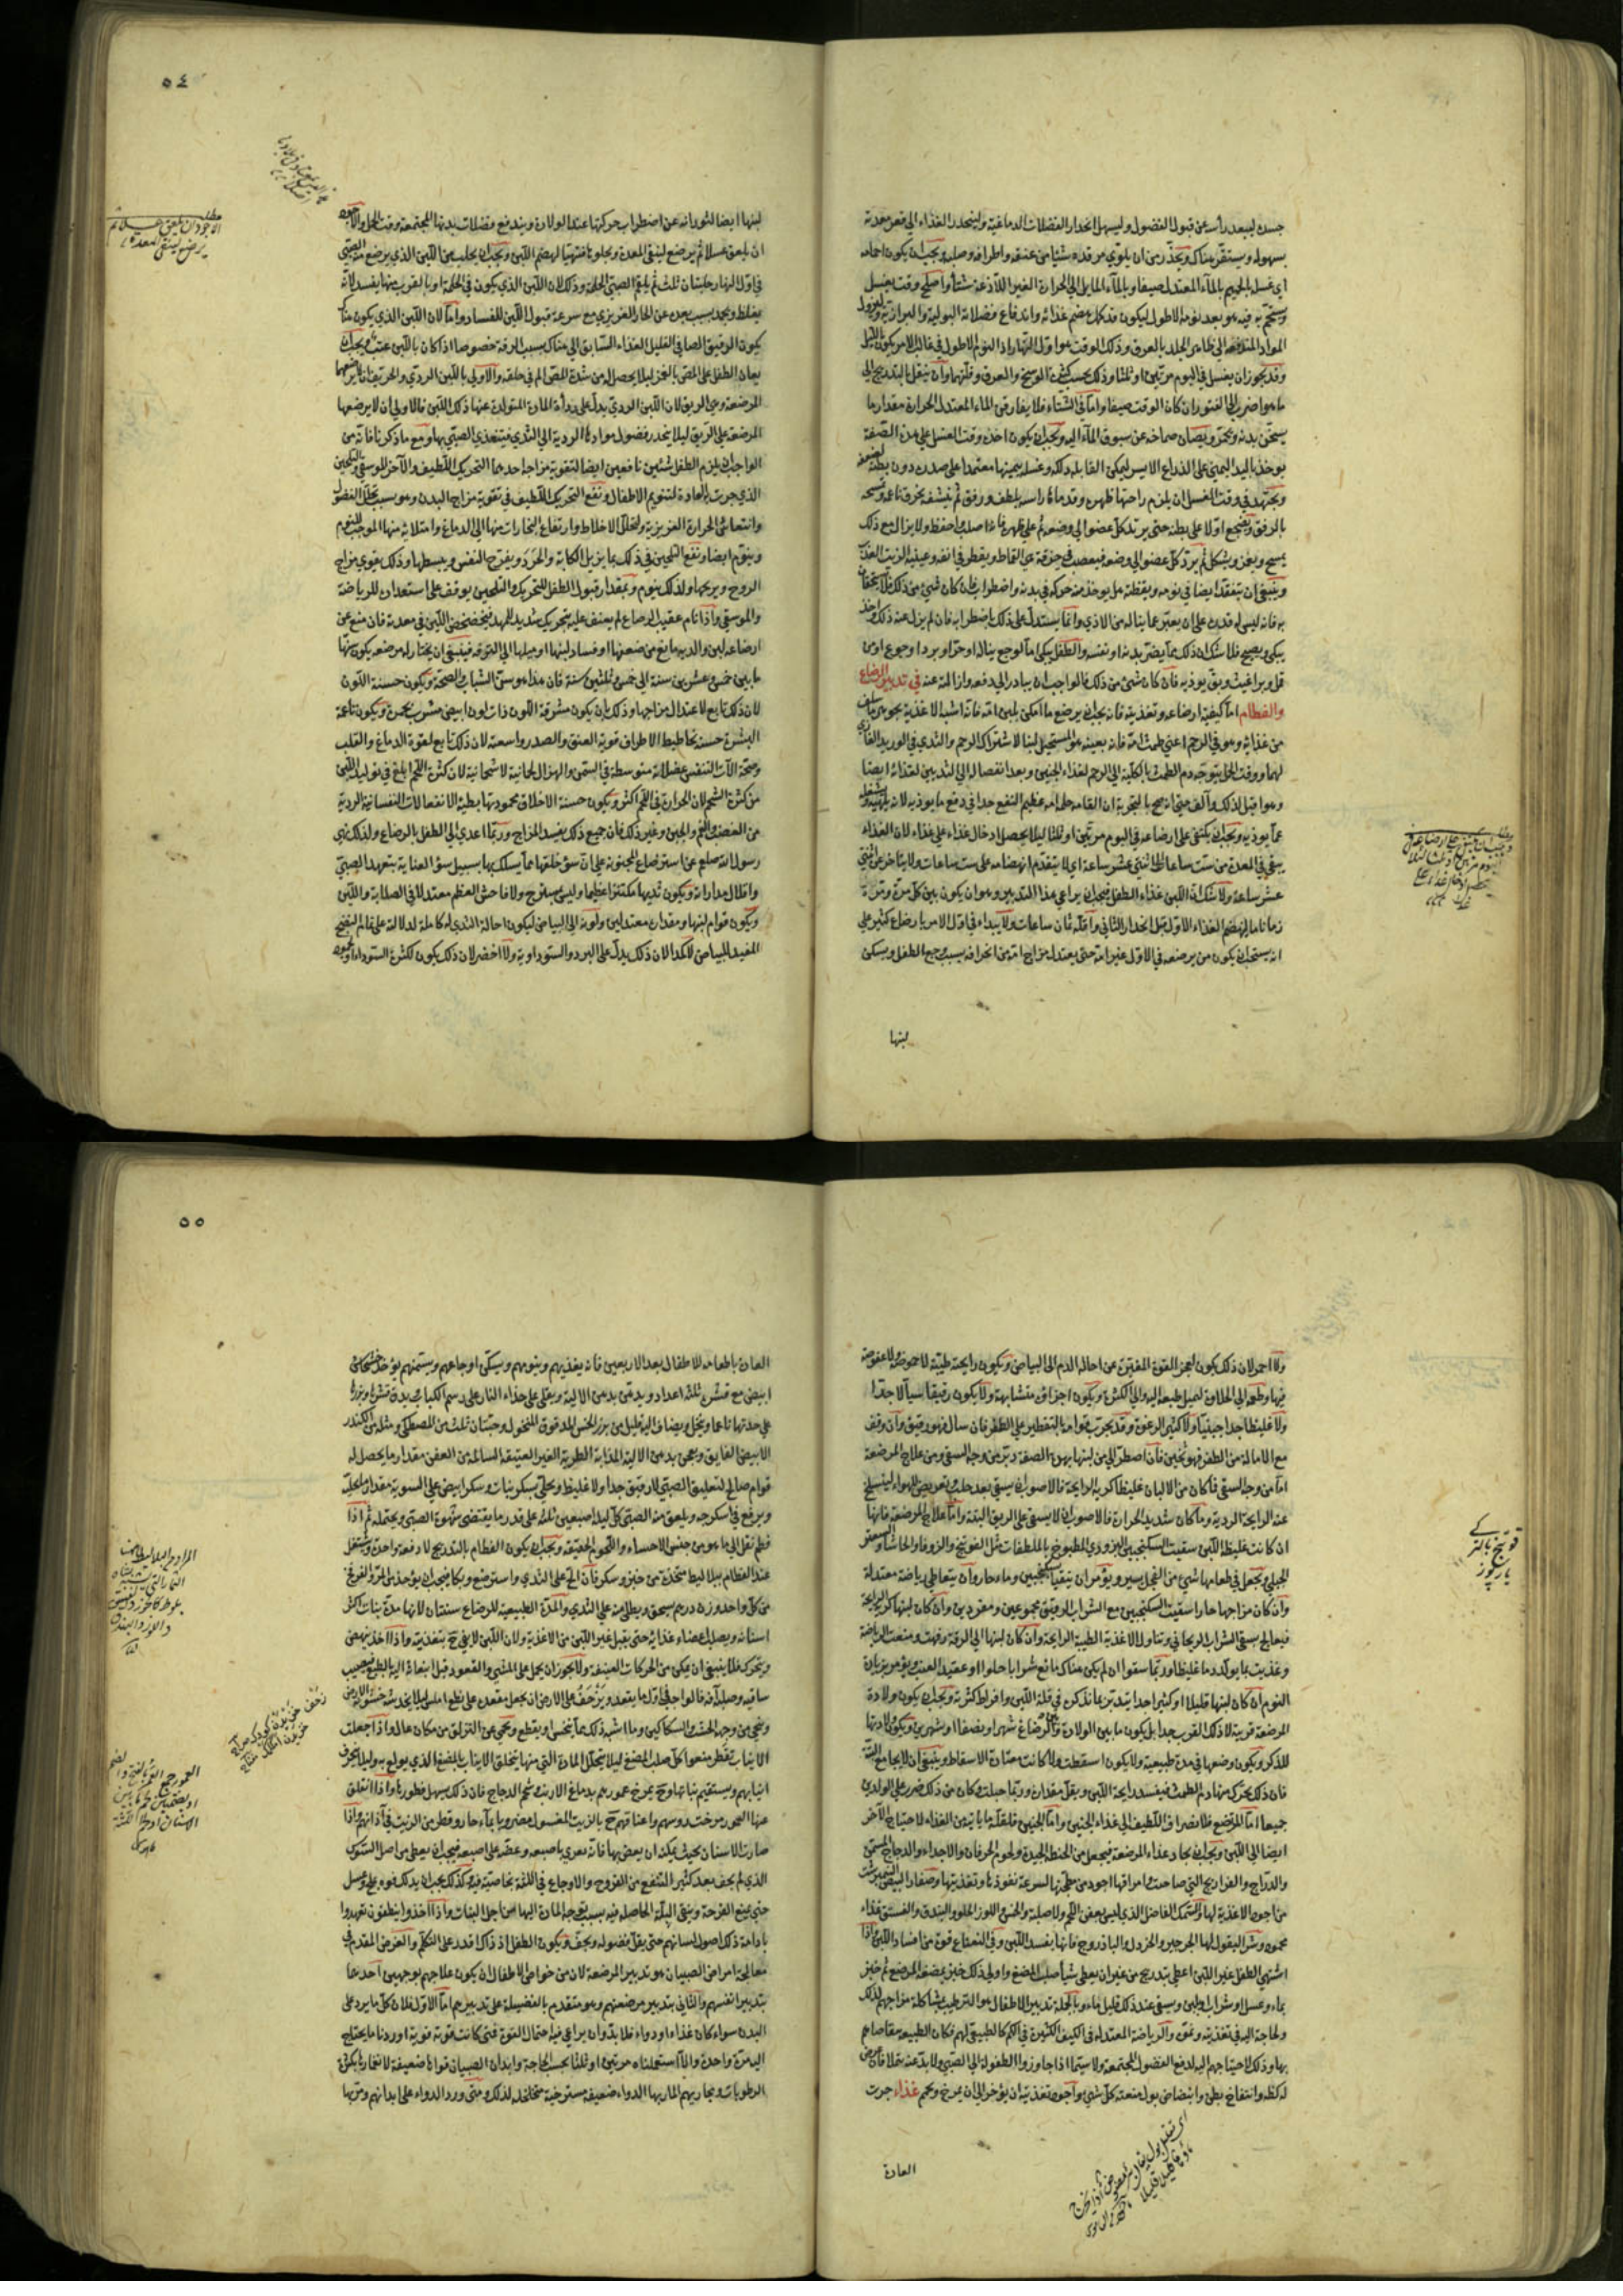 جسده ليبعد رأسه عن قبول الفضول وليسهل انحدار الفضلات الدماغية ولينحدر الغذاء الى قعر معدته
بسهولة ويستقر هناك ويحذر من ان يلتوي مرقده شيئا من عنقه واطرافه وصلبه ويجب ان يكون احمامه
اي غسله بالحميم بالماء المعتدل صيفا وبالماء المايل الى الحرارة الغير اللاذعة شتاء واصلح وقت يغسل
ويستحم به فيه هو بعد نومه الاطول ليكون قد كمل هضم غذائه واندفاع فضلاته البولية والبرازية ونزول
المواد المندفعة الى ظاهر الجلد بالعرق وذلك الوقت هو اول النهار اذ النوم الاطول في غالب الامر يكون بالليل
وقد يجوز ان يغسل في اليوم مرتين او ثلثا وذلك بحسب كثرة الوسخ والعرق وقلتهما وان ينقل بالتدريج الى
ما هو اضرب الى الفتور ان كان الوقت صيفا واما في الشتاء فلا يفارقن الماء المعتدل الحرارة مقدار ما
يسخن بدنه ويحمر ويصان صماخه عن سبوق الماء اليه ويجب ان يكون اخذه وقت الغسل على هذه الصفة
يوخذ باليد اليمنى على الذراع الايسر ليمكن القابلة دلكه وغسله بيمينها معتمدا على صدره دون بطنه
ويجتهد في وقت الغسل ان يلزم راحتها ظهره وقدماه راسه بلطف ورفق ثم ينشف بخرق ناعمة وتمسحه
بالرفق ويضجع اولا على بطنه حتى يرتد كل عضو الى وضعه ثم على ظهره فانه اصلب واحفظ ولا يزال مع ذلك
يمسح ويغمز ويشكل ثم يرد كل عضو الى وضعه فيعصب في خرقة هي القماط ويقطر في انفه وعينيه الزيت العذب
وينبغي ان يتفقد ايضا في نومه ويقظته مل يوخذ منه حركة في بدنه واضطراب فان كان شيء من ذلك فلا يتخفان
به فانه ليس له قدرة على ان يعبر عما يناله من الاذى وانما يستدل على ذلك باضطرابه فان لم يزل عنه ذلك
يبكي ويصيح فلا شك ان ذلك مما يضر بدنه او نفسه والطفل يبكي اما لوجع يناله او حر او برد او جوع او من
قمل وبراغيث وبق يوذيه فان كان شيء من ذلك فالواجب ان يبادر الى دفعه وازالته عنه في تدبير الرضاع
والفطام اما كيفية ارضاعه وتغذيته فانه يجب ان يرضع ما امكن بلبن امه فانه اشبه الاغذية بجوهر ما سلف
من غذائه وهو في الرحم اعني طمث امه فانه بعينه هو المستحيل لبنا لاشتراك الرحم والثدي في الوريد الغاذي
لهما ووقت الحمل يتوجه دم الطمث بالكلية الى الرحم لغذاء الجنين وبعد انفصاله الى الثديين لغذائه ايضا
وهو اقبل لذلك وآلف حتى انه صح بالتجربة ان القامه حلمة امه عظيم النفع جدا في دفع ما يوذيه لانه يلهيه ويشغله
عما يوذيه ويجب ان يكتفي على ارضاعه في اليوم مرتين او ثلثا ليلا يحصل ادخال غذاء على غذاء لان الغذاء
يبقى في المعدة من ست ساعات الى اثنتي عشر ساعة اي لا يتقدم انهضامه على ست ساعات ولا يتاخر عن اثني
عشر ساعة ولا شك ان اللبن غذاء الطفل فيجب ان يراعي هذا التدبير وهو ان يكون بين كل مرة ومرة
زمانا ما لهضم الغذاء الاول قبل انحدار الثاني واقله ثمان ساعات ولا يبداء في اول الامر بارضاع كثير على
انه يستحب ان يكون من يرضعه في الاول غير امه حتى يعتدل مزاج امه من انحرافه بسبب وجع الطفل ويسكن
لبنها
٥٤
لبنها ايضا لثورانه عن اضطراب حركتها عند الولادة ويندفع فضلات بدنها المجتمعة وقت الحمل والاجود
ان يلعق عسلا ثم يرضع لينقى المعدة ويجلوها فتهيا لهضم اللبن ويجب ان يحلب من اللبن الذي يرضع منه الصبي
في اول النهار حلبتان ثلث ثم يلقم الصبي الحلمة وذلك لان اللبن الذي يكون في الحلمة او بالقرب منها يفسد لانه
يغلظ ويجمد بسبب بعده عن الحار الغريزي مع سرعة قبول اللبن للفساد واما لان اللبن الذي يكون هناك
يكون الرقيق الصافي القليل الغذاء السابق الى هناك بسبب الرقة خصوصا اذا كان باللبن عيب ويجب ان
يعان الطفل على المص بالغمز ليلا يحصل له من شدة المص الم في حلقه والاولى باللبن الردي والحريف ان لا يرضعها
المرضعة وهي الريق لان اللبن الردي يدل على رداءة المادة المتولدة عنها ذلك اللبن فالاولى ان لا يرضعها
المرضعة على الريق ليلا ينحدر فضول موادها الردية الى الثدي فيتغذى الصبي بها ومع ما ذكرنا فانه من
الواجب ان يلزم الطفل شيئين نافعين ايضا لتقوية مزاجه احدهما التحريك اللطيف والآخر الموسيقى والتلحين
الذي جرت به العادة لتنويم الاطفال ونفع التحريك اللطيف في تقوية مزاج البدن وهو بسبب تحلل الفضول
وانتعاش الحرارة الغريزية وتخلخل الاخلاط وارتفاع البخارات منها الى الدماغ وامتلائه منها الموجب للنوم
وينوم ايضا ونفع التلحين في ذلك بما يزيل الكآبة والحرد ويفرح النفس ويبسطها وذلك يقوي مزاج
الروح ويريحها ولذلك ينوم وبمقدار قبول الطفل للتحريك والتلحين يوقف على استعداده للرياضة
والموسيقى واذا نام عقيب الرضاع لم يعنف عليه بتحريك شديد للمهد فيخضخض اللبن في معدته فان منع عن
ارضاعه لبن والدته مانع من ضعفها او فساد لبنها او ميلها الى الترفه فينبغي ان يختار له مرضعة يكون سنها
ما بين خمس وعشرين سنة الى خمس وثلثين سنة فان هذا هو سن الشباب والصحة ويكون حسنة اللون
لان ذلك تابع لاعتدال مزاجها وذلك بان يكون مشرقة اللون ذات لون ابيض مشرب بحمرة ويكون ناعمة
البشرة حسنة تخاطيط الاطراف قوية العنق والصدر واسعته لان ذلك تابع لقوة الدماغ والقلب
وصحة الآت التنفس عضلانية متوسطة في السمن والهزال لحمانية لا شحمانية لان كثرة اللحم ابلغ في توليد اللبن
من كثرة الشحم لان الحرارة في اللحم اكثر ويكون حسنة الاخلاق محمودتها بطيئة الانفعالات النفسانية الردية
من الغضب والغم والجبن وغير ذلك فان جميع ذلك يفسد المزاج وربما اعدى الى الطفل بالرضاع ولذلك نهى
رسول الله صلعم عن استرضاع المجنونة على ان سوء خلقها مما يسلك بها سبيل سوء العناية بتعهد الصبي
واقلال مداراته ويكون ثديها مكتنزا عظيما وليس بمسترخ ولا فاحش العظم معتدلا في الصلابة واللين
ويكون قوام لبنها ومقداره معتدلين ولونه الى البياض ليكون احالة الثدي له كاملة لدلالة على تمام النضج
المفيد للبياض لا كمدا لان ذلك يدل على البرد والسوداوية ولا اخضر لان ذلك يكون لكثرة السوداء
ولا احمر لان ذلك يكون لعجز القوة المغيرة عن احالة الدم الى البياض ويكون رايحته طيبة لا حموضة ولا عفوصة
فيها وطعمه الى الحلاوة لتميل طبيعته اليه والى الكثرة ويكون اجزاؤه متشابهة ولا يكون رقيقا سيالا جدا
ولا غليظا جدا جبنيا ولا كثير الرغوة وقد يجرب قوامه بالتقطير على الظفر فان سال فهو رقيق وان وقف
مع الامالة من الظفر فهو ثخين فان اضطر الى من لبنها بهذه الصفة دبر من وجه السقي ومن علاج المرضعة
اما من وجه السقي فما كان من الالبان غليظا كريه الرايحة فالاصوب ان يسقى بعد حلبه وتعريضه للهواء لينسلخ
عنه الرايحة الردية وما كان شديد الحرارة فالاصوب ان لا يسقى على الريق البتة واما علاج المرضعة فانها
ان كانت غليظة اللبن سقيت السكنجبين البزوري المطبوخ بالملطفات مثل الفوتنج والزوفا والحاشا والسعتر
الجبلي ويجعل في طعامها شيء من الفجل يسير ويؤمر ان يتقيا بسكنجبين وماء حار وان يتعاطى رياضة معتدلة
وان كان مزاجها حارا سقيت السكنجبين مع الشراب الرقيق مجموعين ومفردين وان كان لبنها كريه الرايحة
فيعالج بسقي الشراب الريحاني وتناول الاغذية الطيبة الرايحة وان كان لبنها الى الرقة رفهت ومنعت الرياضة
وغذيت بما يولد دما غليظا وربما سقوا ان لم يكن هناك مانع شرابا حلوا او عقيد العنب ويؤمر بزيادة
النوم ان كان لبنها قليلا او كثيرا جدا يتدبر بما نذكر في قلة اللبن وافراط كثرته ويجب ان يكون ولادة
المرضعة قريبة لا ذلك القرب جدا بل يكون ما بين الولادة والرضاع شهرا ونصفا او شهرين ويكون ولادتها
للذكر ويكون وضعها في مدة طبيعية ولا يكون اسقطت ولا كانت معتادة الاسقاط وينبغي ان لا يجامع البتة
فان ذلك يحرك منها دم الطمث فيفسد رايحة اللبن ويقل مقداره وربما حبلت وكان من ذلك ضرر على الولدين
جميعا اما المرتضع فلانصراف اللطيف الى غذاء الجنين واما الجنين فلقلة ما ياتيه من الغذاء لاحتياج الآخر
ايضا الى اللبن ويجب ان يجاد غذاء المرضعة فيجعل من الحنطة الجيدة ولحوم الخرفان والاجداء والدجاج المسمن
والدراج والفراريج التي صاحت امراقها اجود من مطجنها لسرعة نفوذها وتغذيتها وصفار البيض النيمبرشت
من اجود الاغذية لها والسمك الفاضل الذي ليس بعفن اللحم ولا صلبه والخس واللوز الحلو والبندق والفستق غذاء
محمود وشر البقول لها الجرجير والخردل والباذروج فانها يفسد اللبن وفي النعناع قوة من افساد اللبن واذا
اشتهى الطفل غير اللبن اعطي بتدريج من غير ان يعطي شيأ صلب المضغ واولى ذلك خبز يمضغه المرضع ثم خبز
بماء وعسل او شراب ولبن ويسقى عند ذلك قليل ماء وبالجملة تدبير الاطفال هو الترطيب لمشاكلة مزاجهم لذلك
ولحاجته اليه في تغذيته ونموه والرياضة المعتدلة في الكيف الكثيرة في الكم كالطبيعي لهم فكان الطبيعة متقاضاهم
بها وذلك لاحتياجهم اليه لدفع الفضول المجتمعة ولا سيما اذا جاوزوا الطفولة الى الصبي ولابد عند تملا فان عرض
له كظة وانتفاخ بطن وابيضاض بول منعته كل شيء واجود تغذيته ان يوخر الى ان يمرخ ويحم غذاء جرت
العادة
٥٥
العادة باطعامه للاطفال بعد الاربعين فانه يغذيهم وينومهم ويسكن اوجاعهم ويسمنهم يوخذ خشخاش
ابيض مع قشره ثلثة اعداد ويدهن بدهن الالية ويقلى على حذاء النار على رسم الكباب بدق قشره وبزره
على حدتها ناعما وينخل ويضاف اليه قليل من بزر الخس المدقوق المنخول وحبتان ثلث من المصطكى ومثله من الكندر
الابيض الفايق ويعجن بدهن الالية المذابة الطرية الغير العتيقة السالمة من العفن مقدار ما يحصل له
قوام صالح لتلعيق الصبي لا رقيق جدا ولا غليظ ويحلى بسكر نبات وسكر ابيض على السوية مقدار ما يحليه
ويرفع في اسكرجة ويلعق منه الصبي كل ليلة اصبعين ثلثة على قدر ما يقتضي شهوة الصبي ويحتمله ثم اذا
فطم نقل الى ما هو من جنس الاحساء واللحوم الخفيفة ويجب ان يكون الفطام بالتدريج لا دفعة واحدة ويشغل
عند الفطام ببلاليط متخذة من خبز وسكر فان الح على الثدي واسترضع وبكا فيجب ان يوخذ من المر والفودنج
من كل واحد وزن درهم يسحق ويطلى منه على الثدي والمدة الطبيعية للرضاع سنتان لانها مدة نبات اكثر
اسنانه وتصلب اعضاء غذائه حتى يقبل غير اللبن من الاغذية ولان اللبن لا يفي ح بتغذيته واذا اخذ ينهض
ويتحرك فلا ينبغي ان يمكن من الحركات العنيفة ولا يجوز ان يحمل على المشي والقعود قبل انبعاثه اليه بالطبع فيصيب
ساقيه وصلبه آفة فالواجب في اول ما يقعد ويزحف على الارض ان يجعل مقعده على نطع املس ليلا يخدشه خشونة الارض
وينحى عن وجهه الخشب والسكاكين وما اشبه ذلك مما ينخس او يقطع ويحمى عن التزلق من مكان عال واذا جعلت
الانياب تفطر منعوا كل صلب المضغ ليلا يتحلل المادة التي منها يتخلق الانياب بالمضغ الذي يولع به وليلا ينحرف
انيابهم ويستقيم نباتها وح يمرخ عمورهم بدماغ الارنب وشحم الدجاج فان ذلك يسهل فطورها واذا انفلق
عنها العمور مرخت رؤسهم واعناقهم ح بالزيت المغسول مضروبا بماء حار وقطر من الزيت في آذانهم واذا
صارت الاسنان بحيث يمكنه ان يعض بها فانه يغري باصبعه وعضه على اصبعه فيجب ان يعطى من اصل السوس
الذي لم يجف بعد كثيرا لينفع من القروح والاوجاع في اللثة بخاصية فيه وكذلك يجب ان يدلك فوه بملح وعسل
حتى يمنع القرحة وينقي البلة الحاصلة فيه بسبب توجه المادة اليها من اجل النبات واذا اخذوا ينطقون تعهدوا
بادامة ذلك اصول لسانهم حتى يقل فضوله ويخف ويكون الطفل اذ ذاك اقدر على التكلم والغرض المقدم في
معالجة امراض الصبيان هو تدبير المرضعة لان من خواص الاطفال ان يكون علاجهم بوجهين احدهما
بتدبير انفسهم والثاني بتدبير مرضعتهم وهو متقدم بالفضيلة على تدبيرهم اما الاول فلان كل ما يرد على
البدن سواء كان غذاء او دواء فلا بد وان يراعي فيه احتمال القوة فمتى كانت قوته قوية اوردنا ما يحتاج
اليه مرة واحدة والا استعملناه مرتين او ثلثا بحسب الحاجة وابدان الصبيان قواها ضعيفة لانغمارها بكثرة
الرطوبات ومجاريهم المار بها الدواء ضعيفة مسترخية متخلخلة لذلك ومتى ورد الدواء على ابدانهم ومر بها